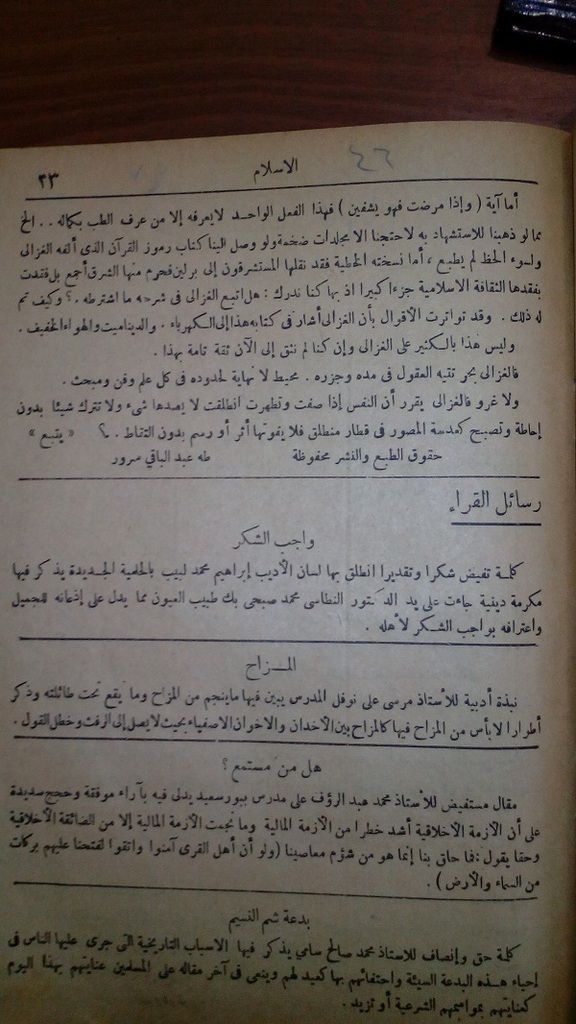 ٢٣
الاسلام
٤٦
أما آية ( وإذا مرضت فهو يشفين ) فهذا الفعل الواحد لا يعرفه إلا من عرف الطب بكماله . . الخ
مما لو ذهبنا للاستشهاد به لاحتجنا الا مجلدات ضخمة ولو وصل الينا كتاب رموز القرآن الذى ألفه الغزالى
ولسوء الحظ لم يطبع ، أما نسخته الخطية فقد نقلها المستشرقون إلى برلين فحرم منها الشرق أجمع بل فقدت
بفقدها الثقافة الاسلامية جزءا كبيرا اذ بها كنا ندرك : هل اتبع الغزالى فى شرحه ما اشترطه . ؟ وكيف تم
له ذلك . وقد تواترت الأقوال بأن الغزالى أشار فى كتابه هذا إلى الكهرباء . والديناميت والهواء الخفيف .
وليس هذا بالكثير على الغزالى وإن كنا لم نثق إلى الآن ثقة تامة بهذا .
فالغزالى بحر تتيه العقول فى مده وجزره . محيط لا نهاية لحدوده فى كل علم وفن ومبحث .
ولا غرو فالغزالى يقرر أن النفس إذا صفت وتطهرت انطلقت لا يصدها شىء ولا تترك شيئا بدون
إحاطة وتصبح كعدسة المصور فى قطار منطلق فلا يفوتها أثر أو رسم بدون التقاط . م؟ « يتبع »
حقوق الطبع والنشر محفوظة طه عبد الباقي سرور
رسائل القراء
واجب الشكر
كلمة تفيض شكرا وتقديرا انطلق بها لسان الأديب إبراهيم محمد لبيب بالحلمية الجديدة يذكر فيها
مكرمة دينية جاءت على يد الدكتور النطاسى محمد صبحى بك طبيب العيون مما يدل على إذعانه للجميل
واعترافه بواجب الشكر لأهله .
المزاح
نبذة أدبية للأستاذ مرسى على نوفل المدرس يبين فيها ما ينجم من المزاح وما يقع تحت طائلته وذكر
أطرارا لا بأس من المزاح فيها كالمزاح بين الأخدان والاخوان الاصفياء بحيث لا يصل إلى الرفث وخطل القول .
هل من مستمع ؟
مقال مستفيض للأستاذ محمد عبد الرؤف على مدرس ببورسعيد يدلى فيه بآراء موفقة وحجج سديدة
على أن الأزمة الأخلاقية أشد خطرا من الأزمة المالية وما نجمت الأزمة المالية إلا من الضائقة الأخلاقية
وحقا يقول : فما حاق بنا إنما هو من شؤم معاصينا (ولو أن أهل القرى آمنوا واتقوا لفتحنا عليهم بركات
من السماء والأرض ) .
بدعة شم النسيم
كلمة حق وإنصاف للاستاذ محمد صالح سامي يذكر فيها الاسباب التاريخية التى جرى عليها الناس فى
إحياء هذه البدعة السيئة واحتفائهم بها كعيد لهم وينعى فى آخر مقاله على المسلمين عنايتهم بهذا اليوم
كعنايتهم بمواسمهم الشرعية أو تزيد .